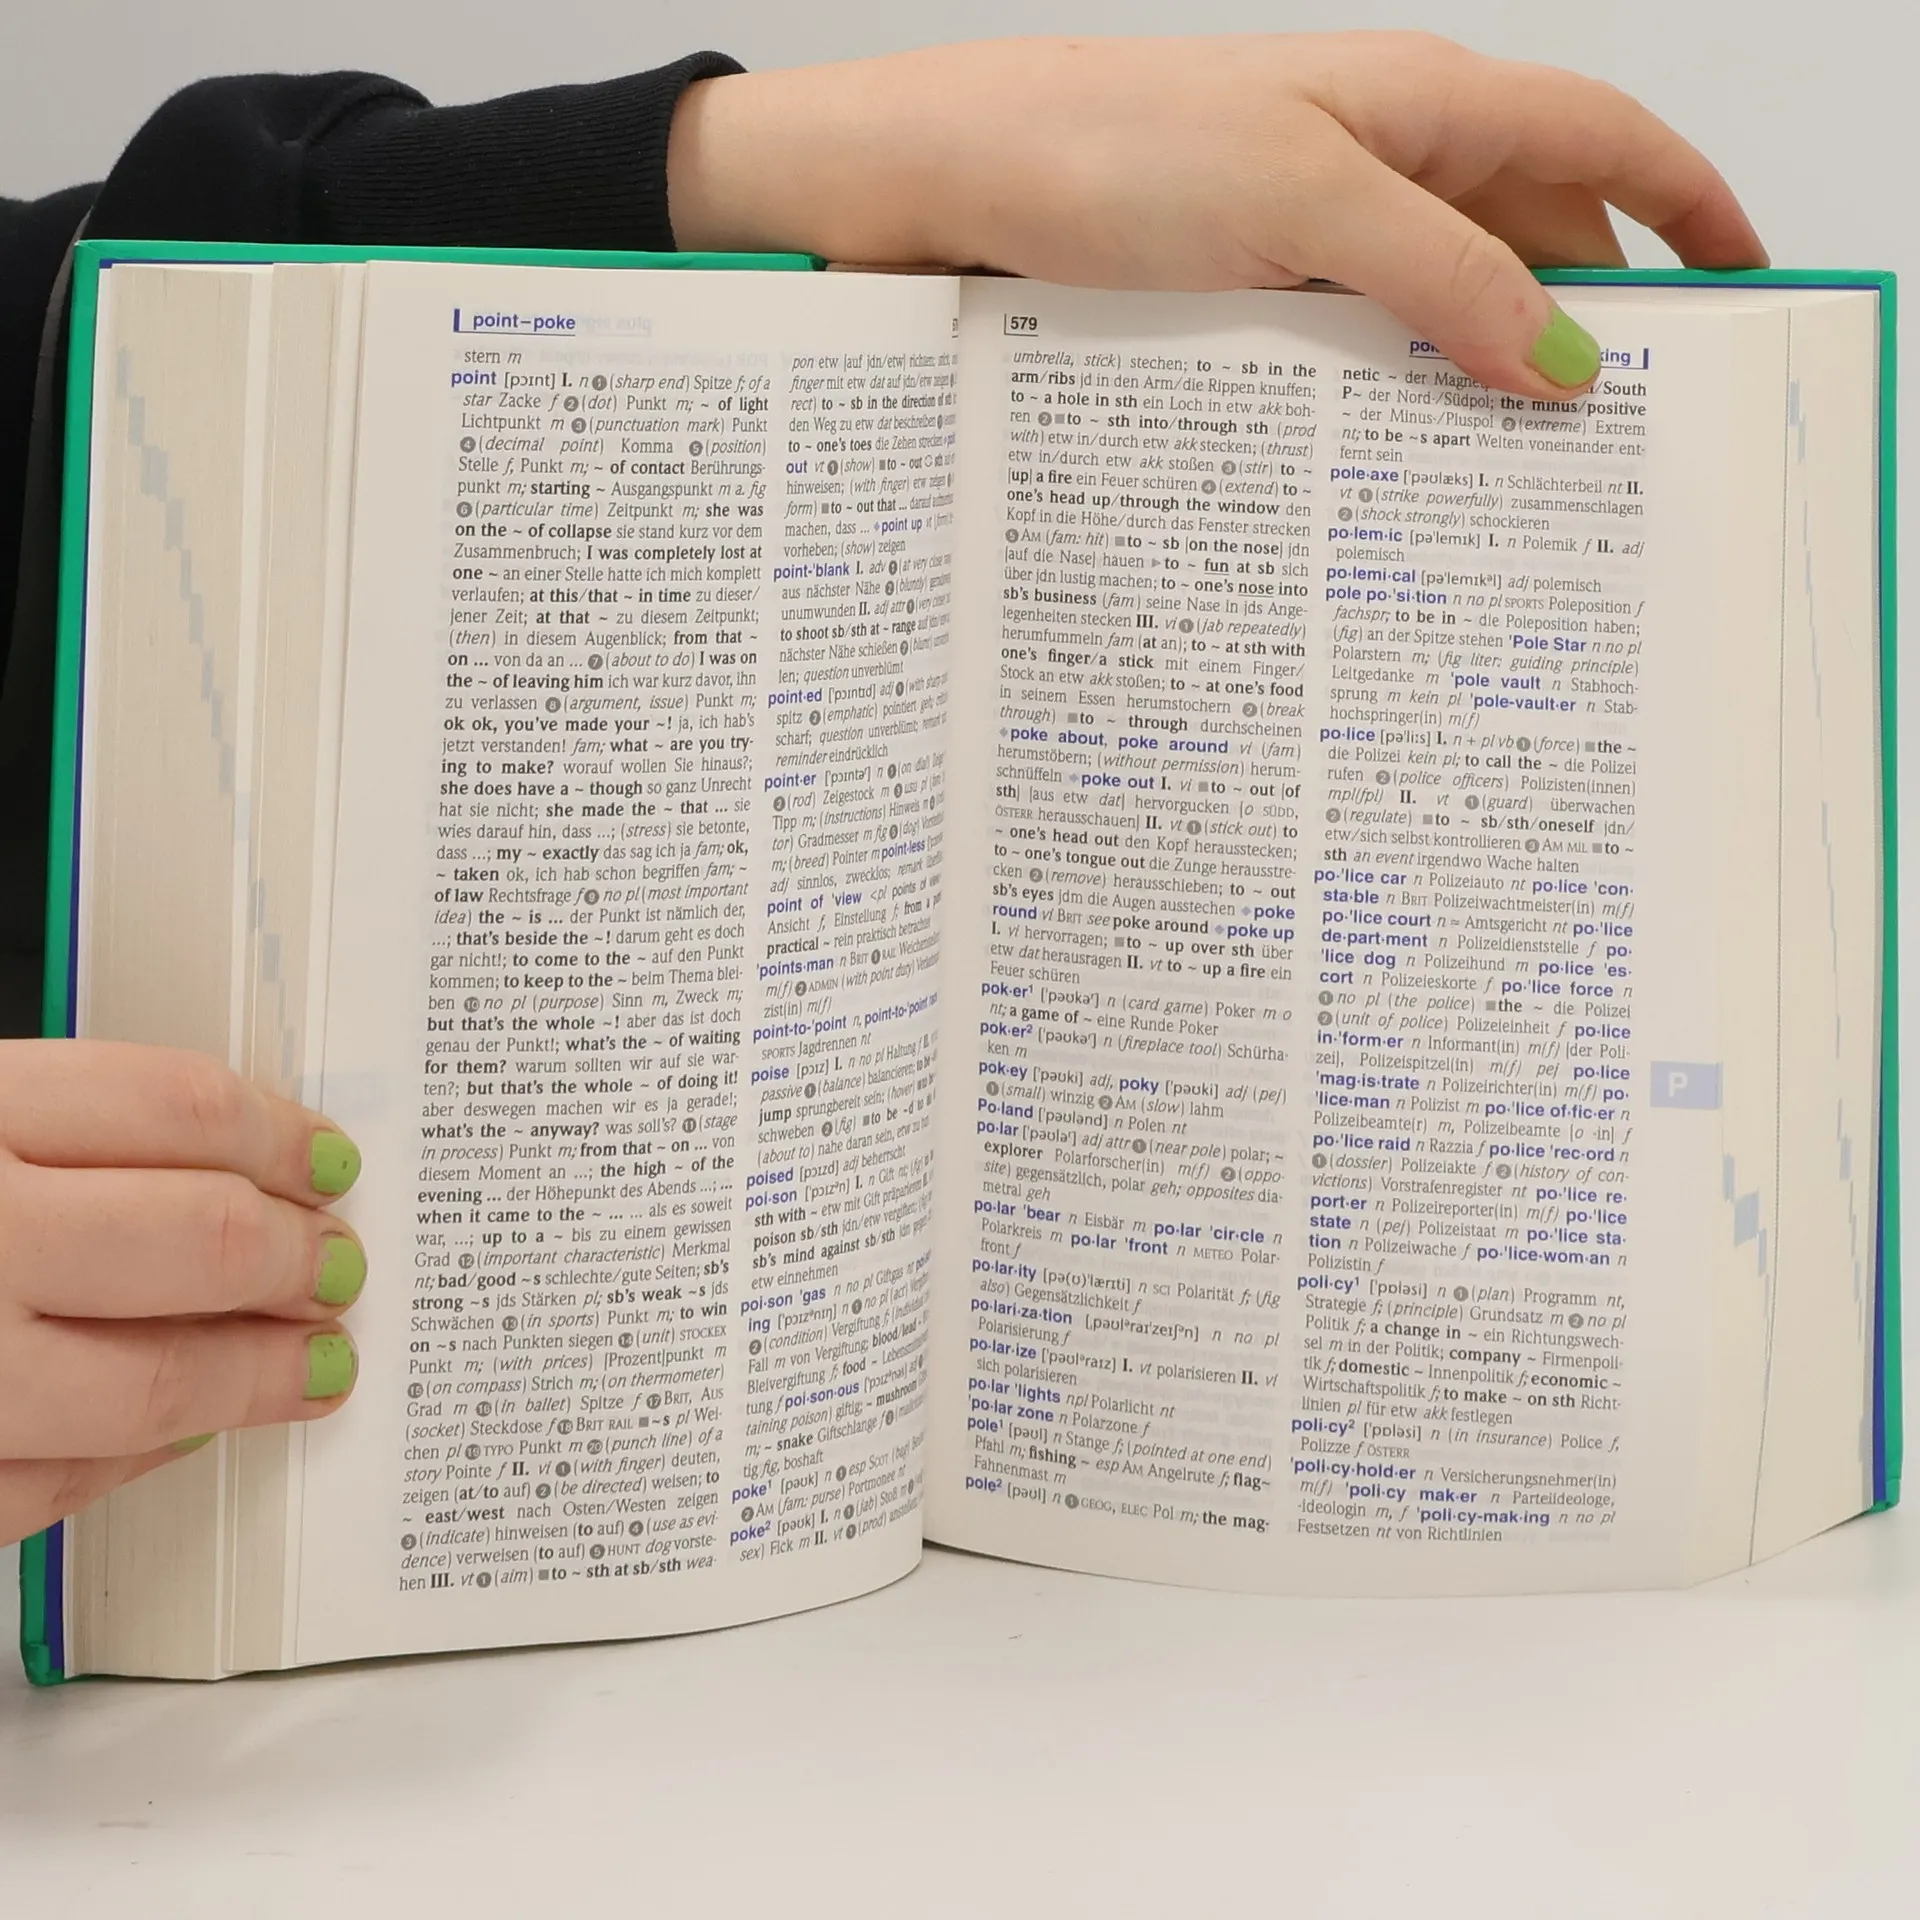 point–poke
stern m
point [pɔɪnt] I. n ❶ (sharp end) Spitze f; of a
star Zacke f ❷ (dot) Punkt m; ~ of light
Lichtpunkt m ❸ (punctuation mark) Punkt
❹ (decimal point) Komma ❺ (position)
Stelle f, Punkt m; ~ of contact Berührungs-
punkt m; starting ~ Ausgangspunkt m a. fig
❻ (particular time) Zeitpunkt m; she was
on the ~ of collapse sie stand kurz vor dem
Zusammenbruch; I was completely lost at
one ~ an einer Stelle hatte ich mich komplett
verlaufen; at this/that ~ in time zu dieser/
jener Zeit; at that ~ zu diesem Zeitpunkt;
(then) in diesem Augenblick; from that ~
on ... von da an ... ❼ (about to do) I was on
the ~ of leaving him ich war kurz davor, ihn
zu verlassen ❽ (argument, issue) Punkt m;
ok ok, you've made your ~! ja, ich hab's
jetzt verstanden! fam; what ~ are you try-
ing to make? worauf wollen Sie hinaus?;
she does have a ~ though so ganz Unrecht
hat sie nicht; she made the ~ that ... sie
wies darauf hin, dass ...; (stress) sie betonte,
dass ...; my ~ exactly das sag ich ja fam; ok,
~ taken ok, ich hab schon begriffen fam; ~
of law Rechtsfrage f ❾ no pl (most important
idea) the ~ is ... der Punkt ist nämlich der,
...; that's beside the ~! darum geht es doch
gar nicht!; to come to the ~ auf den Punkt
kommen; to keep to the ~ beim Thema blei-
ben ❿ no pl (purpose) Sinn m, Zweck m;
but that's the whole ~! aber das ist doch
genau der Punkt!; what's the ~ of waiting
for them? warum sollten wir auf sie war-
ten?; but that's the whole ~ of doing it!
aber deswegen machen wir es ja gerade!;
what's the ~ anyway? was soll's? ⓫ (stage
in process) Punkt m; from that ~ on ... von
diesem Moment an ...; the high ~ of the
evening ... der Höhepunkt des Abends ...; ...
when it came to the ~ ... ... als es soweit
war, ...; up to a ~ bis zu einem gewissen
Grad ⓬ (important characteristic) Merkmal
nt; bad/good ~s schlechte/gute Seiten; sb's
strong ~s jds Stärken pl; sb's weak ~s jds
Schwächen ⓭ (in sports) Punkt m; to win
on ~s nach Punkten siegen ⓮ (unit) STOCKEX
Punkt m; (with prices) [Prozent]punkt m
⓯ (on compass) Strich m; (on thermometer)
Grad m ⓰ (in ballet) Spitze f ⓱ BRIT, AUS
(socket) Steckdose f ⓲ BRIT RAIL ■ ~s pl Wei-
chen pl ⓳ TYPO Punkt m ⓴ (punch line) of a
story Pointe f II. vi ❶ (with finger) deuten,
zeigen (at/to auf) ❷ (be directed) weisen; to
~ east/west nach Osten/Westen zeigen
❸ (indicate) hinweisen (to auf) ❹ (use as evi-
dence) verweisen (to auf) ❺ HUNT dog vorste-
hen III. vt ❶ (aim) ■to ~ sth at sb/sth wea-
pon etw [auf jdn/etw] richten;
finger mit etw dat auf jdn/etw zeigen
rect) to ~ sb in the direction of
den Weg zu etw dat beschreiben
to ~ one's toes die Zehen strecken
out vt ❶ (show) ■to ~ out
hinweisen; (with finger) etw zeigen
form) ■to ~ out that ... darauf
machen, dass ... ◆point up vt
vorheben; (show) zeigen
point-'blank I. adv ❶ (at very close
aus nächster Nähe ❷ (bluntly)
unumwunden II. adj attr ❶ (very close
to shoot sb/sth at ~ range auf
nächster Nähe schießen ❷
len; question unverblümt
point·ed ['pɔɪntɪd] adj ❶ (with sharp
spitz ❷ (emphatic) pointiert geh;
scharf; question unverblümt;
reminder eindrücklich
point·er ['pɔɪntəʳ] n ❶ (on dial)
❷ (rod) Zeigestock m ❸
Tipp m; (instructions) Hinweis m
tor) Gradmesser m fig ❺ (dog)
m; (breed) Pointer m point·less
adj sinnlos, zwecklos; remark
point of 'view <pl points of view>
Ansicht f, Einstellung f; from a
practical ~ rein praktisch betrachtet
'points·man n BRIT ❶ RAIL
m(f) ❷ ADMIN (with point duty)
zist(in) m(f)
point-to-'point n, point-to-'point
SPORTS Jagdrennen nt
poise [pɔɪz] I. n no pl Haltung f II.
passive ❶ (balance) balancieren;
jump sprungbereit sein; (hover)
schweben ❷ (fig) ■to be ~d to
(about to) nahe daran sein, etw zu tun
poised [pɔɪzd] adj beherrscht
poi·son ['pɔɪzᵊn] I. n Gift nt;
sth with ~ etw mit Gift präparieren
poison sb/sth jdn/etw vergiften;
sb's mind against sb/sth jdn gegen
etw einnehmen
poi·son 'gas n no pl Giftgas nt
ing ['pɔɪzᵊnɪŋ] n ❶ no pl (act)
❷ (condition) Vergiftung f;
Fall m von Vergiftung; blood/lead ~
Bleivergiftung f; food ~
tung f poi·son·ous ['pɔɪzᵊnəs] adj
taining poison) giftig; ~ mushroom
m; ~ snake Giftschlange f
tig fig, boshaft
poke¹ [pəʊk] n ❶ esp SCOT (bag)
❷ AM (fam: purse) Portmonee nt
poke² [pəʊk] I. n ❶ (jab) Stoß m
sex) Fick m II. vt ❶ (prod)
579
king
umbrella, stick) stechen; to ~ sb in the
arm/ribs jd in den Arm/die Rippen knuffen;
to ~ a hole in sth ein Loch in etw akk boh-
ren ❷ ■to ~ sth into/through sth (prod
with) etw in/durch etw akk stecken; (thrust)
etw in/durch etw akk stoßen ❸ (stir) to ~
[up] a fire ein Feuer schüren ❹ (extend) to ~
one's head up/through the window den
Kopf in die Höhe/durch das Fenster strecken
❺ AM (fam: hit) ■to ~ sb [on the nose] jdn
[auf die Nase] hauen ▶to ~ fun at sb sich
über jdn lustig machen; to ~ one's nose into
sb's business (fam) seine Nase in jds Ange-
legenheiten stecken III. vi ❶ (jab repeatedly)
herumfummeln fam (at an); to ~ at sth with
one's finger/a stick mit einem Finger/
Stock an etw akk stoßen; to ~ at one's food
in seinem Essen herumstochern ❷ (break
through) ■to ~ through durchscheinen
◆poke about, poke around vi (fam)
herumstöbern; (without permission) herum-
schnüffeln ◆poke out I. vi ■to ~ out [of
sth] [aus etw dat] hervorgucken [o SÜDD,
ÖSTERR herausschauen] II. vt ❶ (stick out) to
~ one's head out den Kopf herausstecken;
to ~ one's tongue out die Zunge herausstre-
cken ❷ (remove) herausschieben; to ~ out
sb's eyes jdm die Augen ausstechen ◆poke
round vi BRIT see poke around ◆poke up
I. vi hervorragen; ■to ~ up over sth über
etw dat herausragen II. vt to ~ up a fire ein
Feuer schüren
pok·er¹ ['pəʊkəʳ] n (card game) Poker m o
nt; a game of ~ eine Runde Poker
pok·er² ['pəʊkəʳ] n (fireplace tool) Schürha-
ken m
pok·ey ['pəʊki] adj, poky ['pəʊki] adj (pej)
❶ (small) winzig ❷ AM (slow) lahm
Po·land ['pəʊlənd] n Polen nt
po·lar ['pəʊləʳ] adj attr ❶ (near pole) polar; ~
explorer Polarforscher(in) m(f) ❷ (oppo-
site) gegensätzlich, polar geh; opposites dia-
metral geh
po·lar 'bear n Eisbär m po·lar 'cir·cle n
Polarkreis m po·lar 'front n METEO Polar-
front f
po·lar·ity [pə(ʊ)'lærɪti] n SCI Polarität f; (fig
also) Gegensätzlichkeit f
po·lari·za·tion [ˌpəʊlᵊraɪ'zeɪʃᵊn] n no pl
Polarisierung f
po·lar·ize ['pəʊlᵊraɪz] I. vt polarisieren II. vi
sich polarisieren
po·lar 'lights npl Polarlicht nt
'po·lar zone n Polarzone f
pole¹ [pəʊl] n Stange f; (pointed at one end)
Pfahl m; fishing ~ esp AM Angelrute f; flag~
Fahnenmast m
pole² [pəʊl] n ❶ GEOG, ELEC Pol m; the mag-
netic ~ der /South
P~ der Nord-/Südpol; the minus/positive
~ der Minus-/Pluspol ❷ (extreme) Extrem
nt; to be ~s apart Welten voneinander ent-
fernt sein
pole·axe ['pəʊlæks] I. n Schlächterbeil nt II.
vt ❶ (strike powerfully) zusammenschlagen
❷ (shock strongly) schockieren
po·lem·ic [pə'lemɪk] I. n Polemik f II. adj
polemisch
po·lemi·cal [pə'lemɪkᵊl] adj polemisch
pole po·'si·tion n no pl SPORTS Poleposition f
fachspr; to be in ~ die Poleposition haben;
(fig) an der Spitze stehen 'Pole Star n no pl
Polarstern m; (fig liter: guiding principle)
Leitgedanke m 'pole vault n Stabhoch-
sprung m kein pl 'pole-vault·er n Stab-
hochspringer(in) m(f)
po·lice [pə'liːs] I. n + pl vb ❶ (force) ■the ~
die Polizei kein pl; to call the ~ die Polizei
rufen ❷ (police officers) Polizisten(innen)
mpl(fpl) II. vt ❶ (guard) überwachen
❷ (regulate) ■to ~ sb/sth/oneself jdn/
etw/sich selbst kontrollieren ❸ AM MIL ■to ~
sth an event irgendwo Wache halten
po·'lice car n Polizeiauto nt po·lice 'con·
sta·ble n BRIT Polizeiwachtmeister(in) m(f)
po·'lice court n ≈ Amtsgericht nt po·'lice
de·part·ment n Polizeidienststelle f po·
'lice dog n Polizeihund m po·lice 'es·
cort n Polizeieskorte f po·'lice force n
❶ no pl (the police) ■the ~ die Polizei
❷ (unit of police) Polizeieinheit f po·lice
in·'form·er n Informant(in) m(f) [der Poli-
zei], Polizeispitzel(in) m(f) pej po·lice
'mag·is·trate n Polizeirichter(in) m(f) po·
'lice·man n Polizist m po·'lice of·fic·er n
Polizeibeamte(r) m, Polizeibeamte [o -in] f
po·'lice raid n Razzia f po·lice 'rec·ord n
❶ (dossier) Polizeiakte f ❷ (history of con-
victions) Vorstrafenregister nt po·'lice re·
port·er n Polizeireporter(in) m(f) po·'lice
state n (pej) Polizeistaat m po·'lice sta·
tion n Polizeiwache f po·'lice·wom·an n
Polizistin f
poli·cy¹ ['pɒləsi] n ❶ (plan) Programm nt,
Strategie f; (principle) Grundsatz m ❷ no pl
Politik f; a change in ~ ein Richtungswech-
sel m in der Politik; company ~ Firmenpoli-
tik f; domestic ~ Innenpolitik f; economic ~
Wirtschaftspolitik f; to make ~ on sth Richt-
linien pl für etw akk festlegen
poli·cy² ['pɒləsi] n (in insurance) Police f,
Polizze f ÖSTERR
'poli·cy·hold·er n Versicherungsnehmer(in)
m(f) 'poli·cy mak·er n Parteiideologe,
-ideologin m, f 'poli·cy-mak·ing n no pl
Festsetzen nt von Richtlinien
P